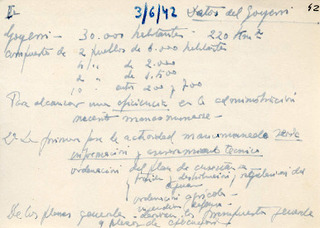 3/6/42 Datos del Goyerri 42
Goyerri - 30.000 habitantes - 220 Km²
compuesta de 2 pueblos de 6.000 habitantes
4 " de 2.000
de 1.500
10 " entre 200 y 700
Para alcanzar una eficiencia en la administración
necesita mancomunarse -
1º La primera fase de actividad mancomunada sería
información y asesoramiento técnico
ordenación del plan de enseñanza
y distribución
agua
ordenación agrícola
De los planes generales - derivan los presupuestos generales
y planes de ejecución -